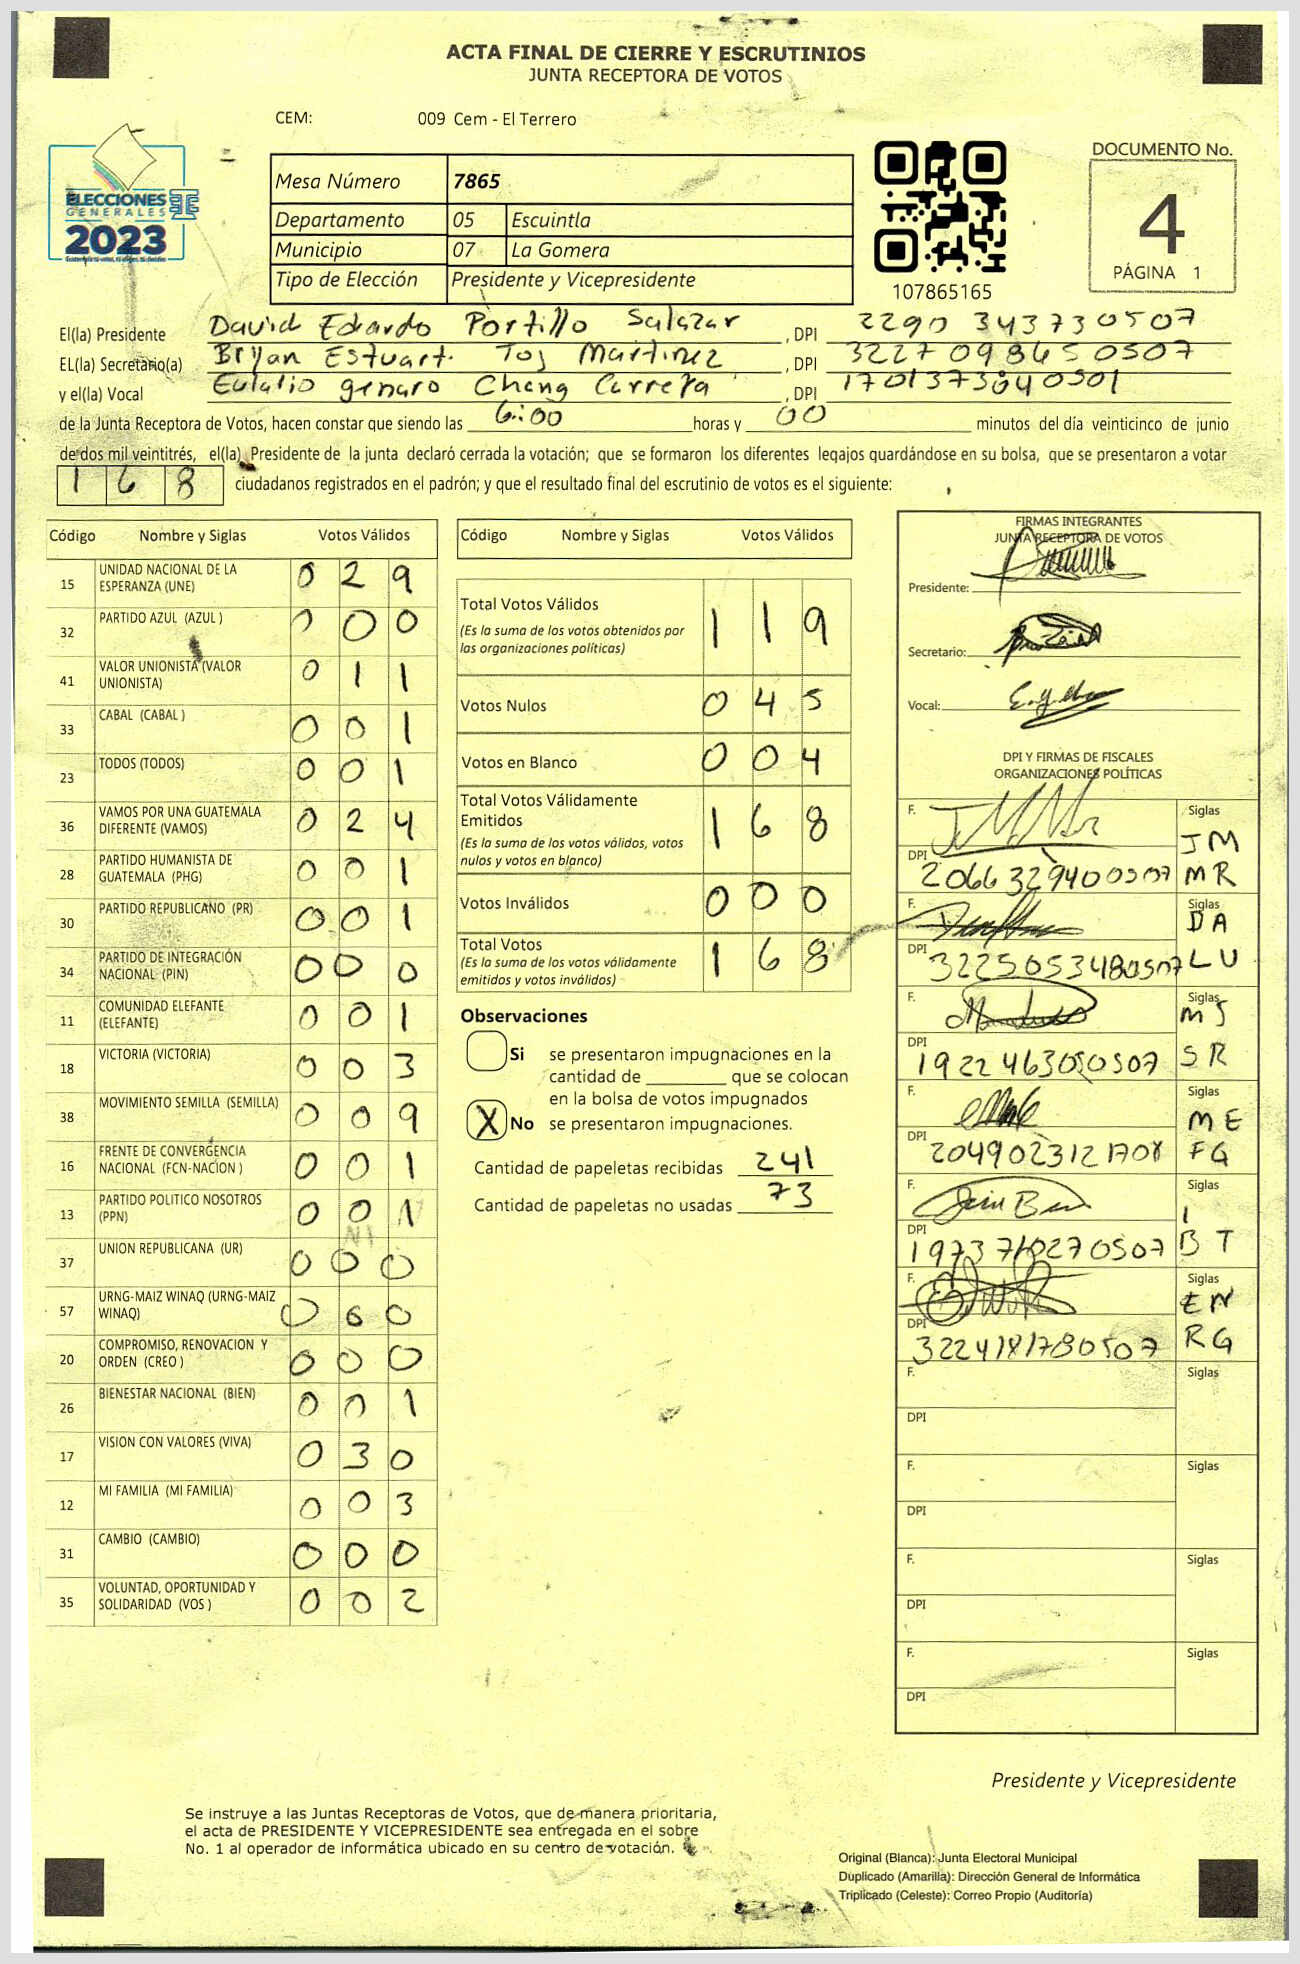 ACTA FINAL DE CIERRE Y ESCRUTINIOS
JUNTA RECEPTORA DE VOTOS
CEM: 009 Cem - El Terrero
ELECCIONES
GENERALES
2023
Mesa Número 7865
Departamento 05 Escuintla
Municipio 07 La Gomera
Tipo de Elección Presidente y Vicepresidente
107865165
DOCUMENTO No.
4
PÁGINA 1
El(la) Presidente David Edardo Portillo Salazar, DPI 2290 343730507
EL(la) Secretario(a) Bryan Estuart. Toj Martinez, DPI 3227098650507
y el(la) Vocal Eulalio genaro Chang Carrera, DPI 1701373040501
de la Junta Receptora de Votos, hacen constar que siendo las 6:00 horas y 00 minutos del día veinticinco de junio
de dos mil veintitrés, el(la) Presidente de la junta declaró cerrada la votación; que se formaron los diferentes legajos guardándose en su bolsa, que se presentaron a votar
168 ciudadanos registrados en el padrón; y que el resultado final del escrutinio de votos es el siguiente:
Código Nombre y Siglas Votos Válidos
15 UNIDAD NACIONAL DE LA ESPERANZA (UNE) 0 2 9
32 PARTIDO AZUL (AZUL ) 0 0 0
41 VALOR UNIONISTA (VALOR UNIONISTA) 0 1 1
33 CABAL (CABAL ) 0 0 1
23 TODOS (TODOS) 0 0 1
36 VAMOS POR UNA GUATEMALA DIFERENTE (VAMOS) 0 2 4
28 PARTIDO HUMANISTA DE GUATEMALA (PHG) 0 0 1
30 PARTIDO REPUBLICANO (PR) 0 0 1
34 PARTIDO DE INTEGRACIÓN NACIONAL (PIN) 0 0 0
11 COMUNIDAD ELEFANTE (ELEFANTE) 0 0 1
18 VICTORIA (VICTORIA) 0 0 3
38 MOVIMIENTO SEMILLA (SEMILLA) 0 0 9
16 FRENTE DE CONVERGENCIA NACIONAL (FCN-NACION ) 0 0 1
13 PARTIDO POLITICO NOSOTROS (PPN) 0 0 1
37 UNION REPUBLICANA (UR) 0 0 0
57 URNG-MAIZ WINAQ (URNG-MAIZ WINAQ) 0 0 0
20 COMPROMISO, RENOVACION Y ORDEN (CREO ) 0 0 0
26 BIENESTAR NACIONAL (BIEN) 0 0 1
17 VISION CON VALORES (VIVA) 0 3 0
12 MI FAMILIA (MI FAMILIA) 0 0 3
31 CAMBIO (CAMBIO) 0 0 0
35 VOLUNTAD, OPORTUNIDAD Y SOLIDARIDAD (VOS ) 0 0 2
Código Nombre y Siglas Votos Válidos
Total Votos Válidos 1 1 9
(Es la suma de los votos obtenidos por
las organizaciones políticas)
Votos Nulos 0 4 5
Votos en Blanco 0 0 4
Total Votos Válidamente
Emitidos 1 6 8
(Es la suma de los votos válidos, votos
nulos y votos en blanco)
Votos Inválidos 0 0 0
Total Votos 1 6 8
(Es la suma de los votos válidamente
emitidos y votos inválidos)
Observaciones
Si se presentaron impugnaciones en la
cantidad de ________ que se colocan
en la bolsa de votos impugnados
X No se presentaron impugnaciones.
Cantidad de papeletas recibidas 241
Cantidad de papeletas no usadas 73
FIRMAS INTEGRANTES
JUNTA RECEPTORA DE VOTOS
Presidente:
Secretario:
Vocal:
DPI Y FIRMAS DE FISCALES
ORGANIZACIONES POLÍTICAS
F. Siglas
JM
DPI 2066329400507 MR
F. Siglas
DA
DPI 3225053480507 LU
F. Siglas
MJ
DPI 1922463050507 SR
F. Siglas
ME
DPI 2049023121708 FG
F. Siglas
I
DPI BT
F. Siglas
EN
DPI 3224181780507 RG
F. Siglas
DPI
F. Siglas
DPI
F. Siglas
DPI
F. Siglas
DPI
Presidente y Vicepresidente
Se instruye a las Juntas Receptoras de Votos, que de manera prioritaria,
el acta de PRESIDENTE Y VICEPRESIDENTE sea entregada en el sobre
No. 1 al operador de informática ubicado en su centro de votación.
Original (Blanca): Junta Electoral Municipal
Duplicado (Amarilla): Dirección General de Informática
Triplicado (Celeste): Correo Propio (Auditoría)